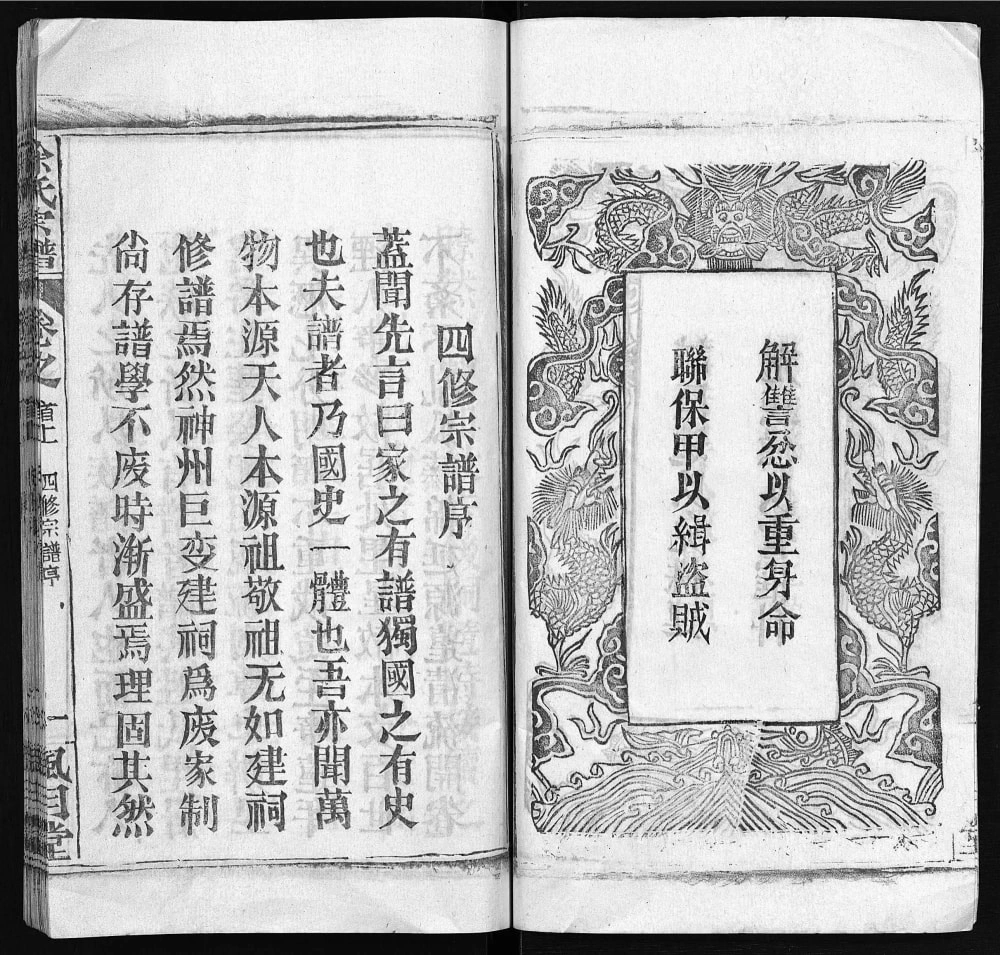 解讐忿以重身命
聯保甲以緝盜賊
四修宗譜序
蓋聞先言曰家之有譜獨國之有史
也夫譜者乃國史一體也吾亦聞萬
物本源天人本源祖敬祖无如建祠
修譜焉然神州巨变建祠爲废家制
尙存譜學不废時渐盛焉理固其然
徐氏宗譜
卷之
首上
四修宗譜序
一
風日堂